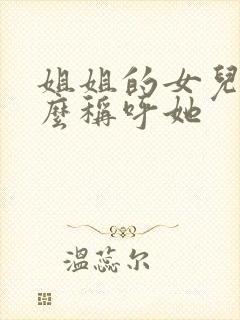 姐姐的女兒
麼稱呼她
溫蕊尔